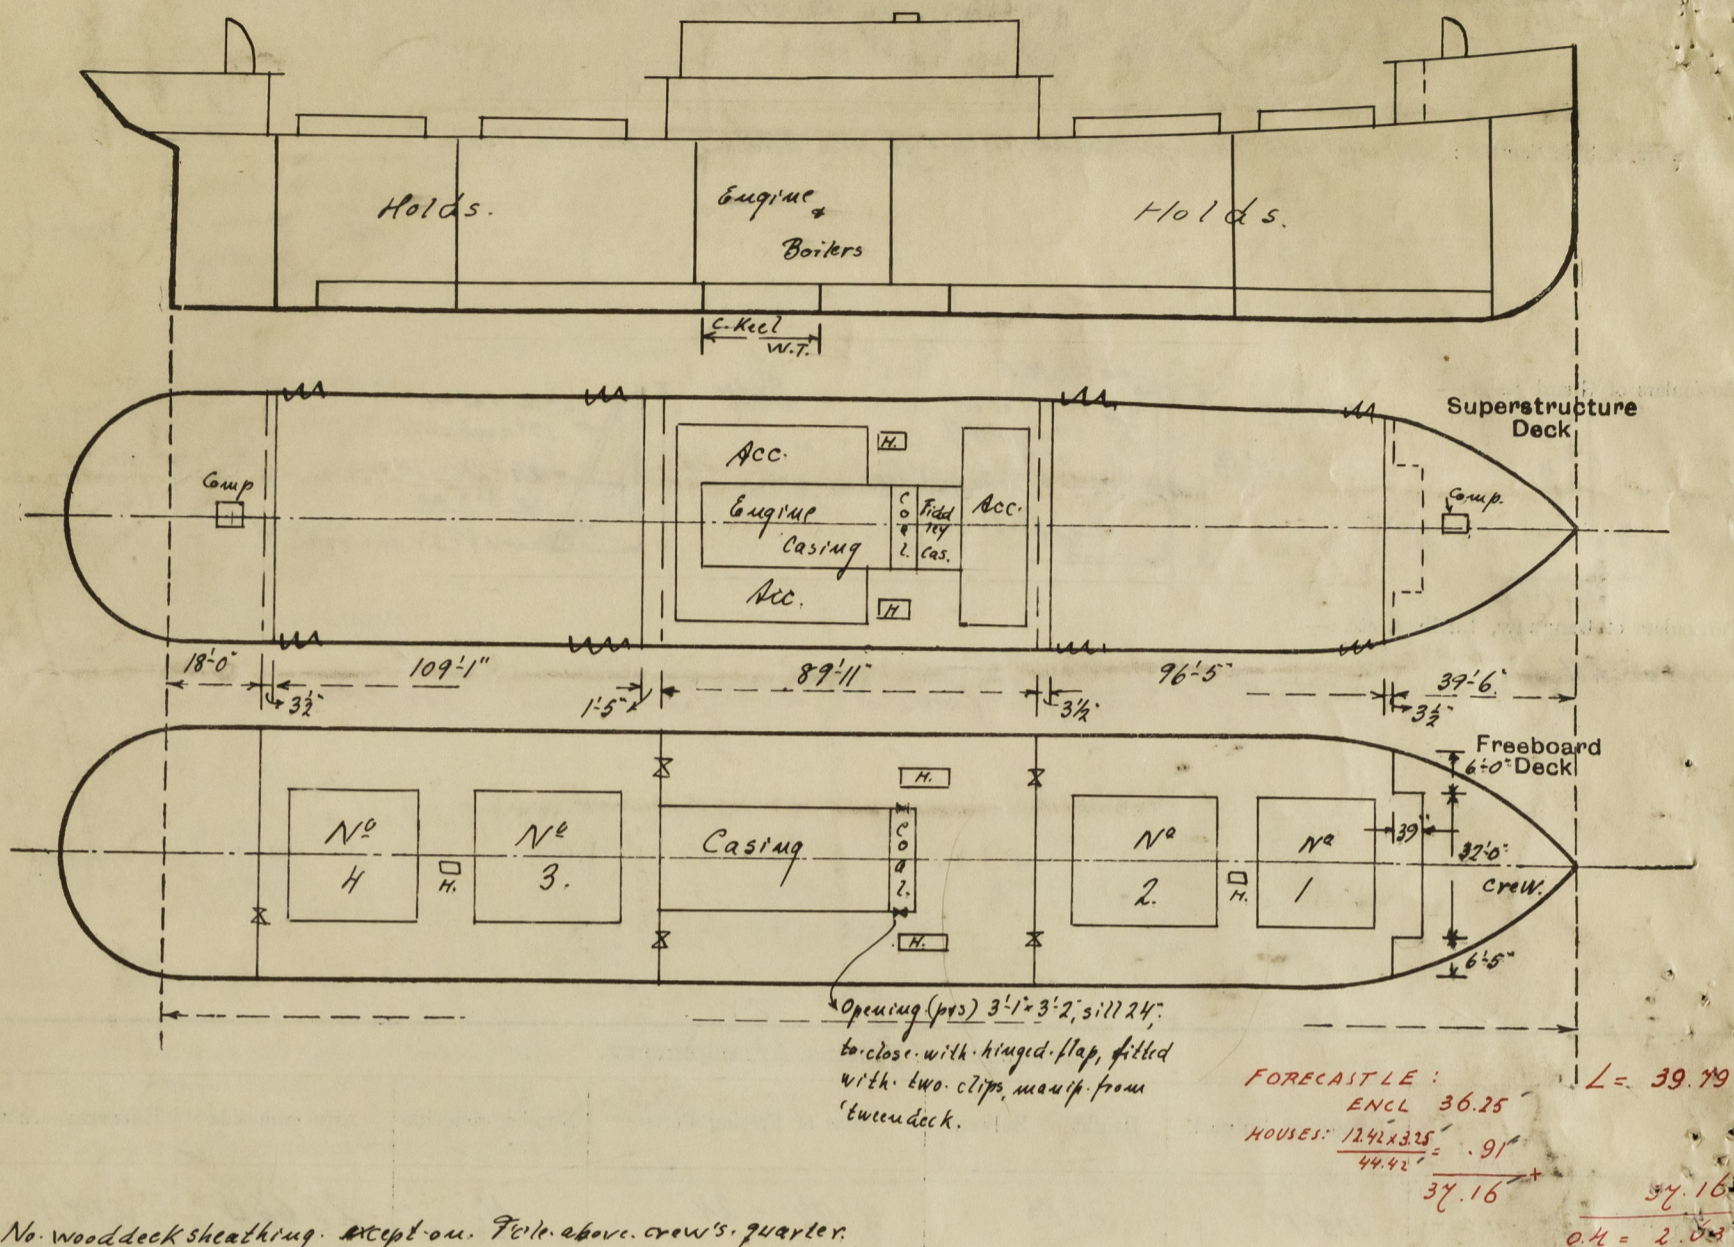 Holds.
Engine &
Boilers
Holds.
C. Keel
W.T.
Superstructure
Deck
Comp
Acc.
H.
Engine
Casing
Coal.
Fidd
ley
Cas.
Acc.
Comp.
Acc.
H
18'-0"
109'-1"
89'-11"
96'-5"
39'-6"
3½"
1'-5"
3½"
3½"
Freeboard
Deck
6'-0"
Nº
4
H.
Nº
3.
Casing
Coal.
H.
Nº
2.
H.
Nº
1
39"
32'-0"
crew.
H.
6'-5"
Opening (prs) 3'-1" x 3'-2", sill 24",
to close with hinged flap, fitted
with two clips, manip. from
'tweendeck.
FORECASTLE:
ENCL 36.25'
HOUSES: 12.42' x 3.25' / 44.42' = .91'
37.16' +
L = 39.79
37.16
0.H = 2.63
No. wooddeck sheathing. except on. F'cle. above. crew's. quarter.